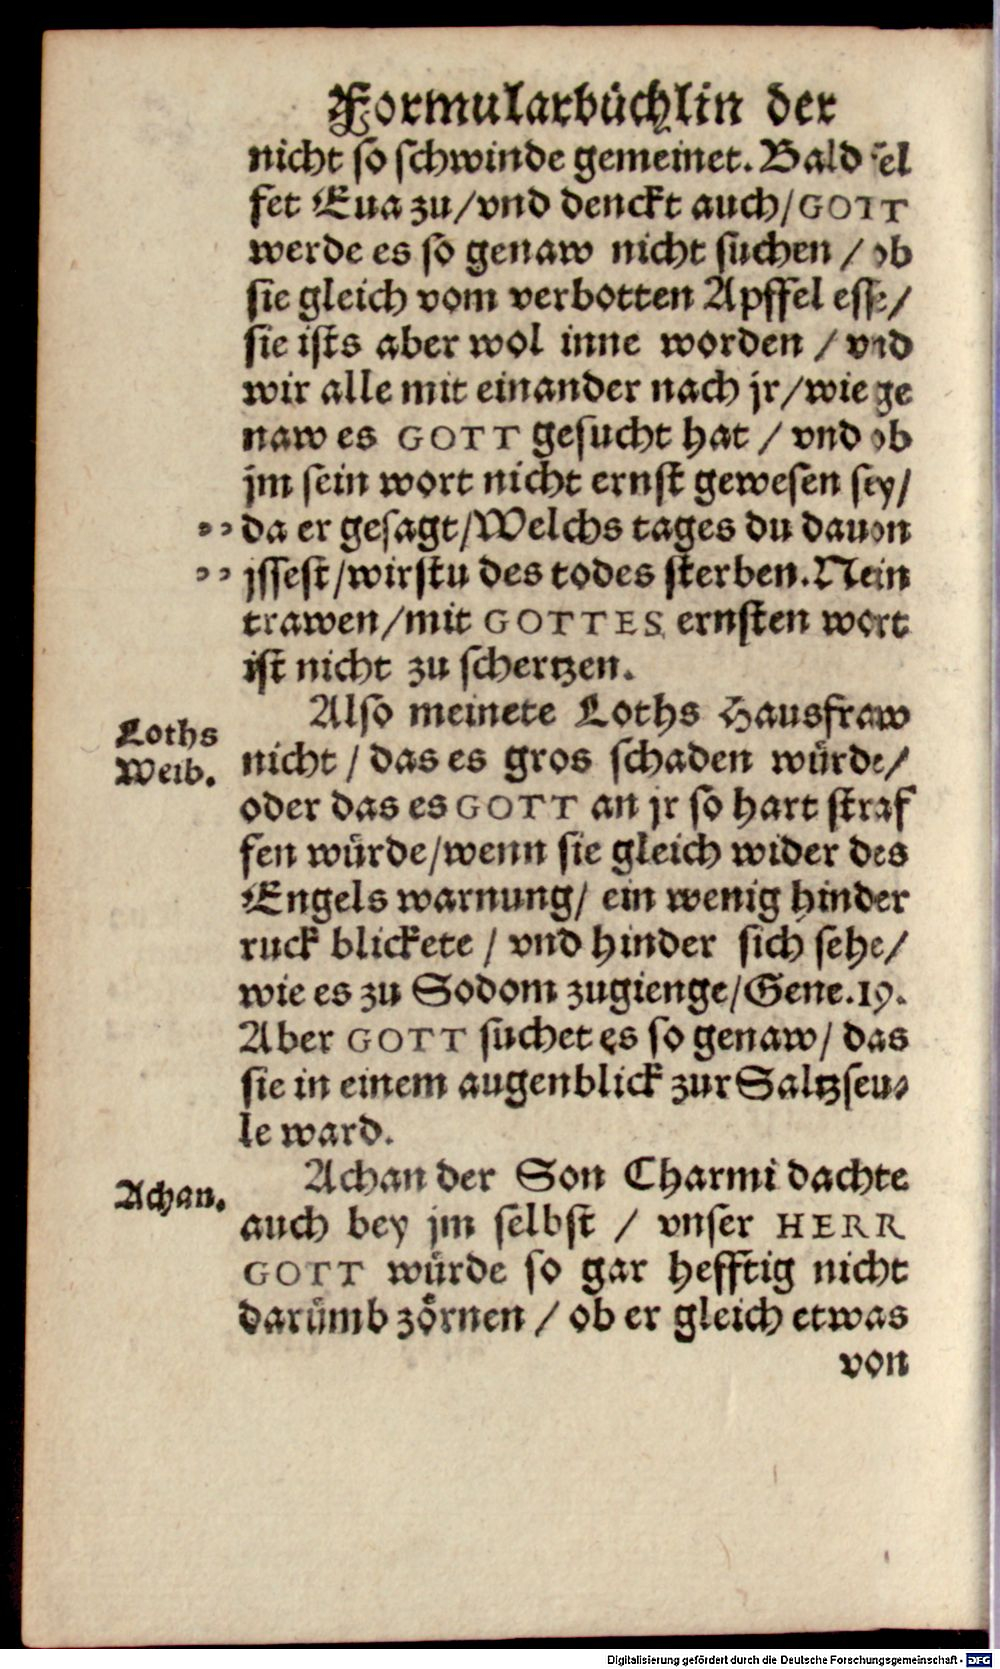 Formularbüchlin der
nicht so schwinde gemeinet. Bald fel
fet Eua zu/vnd denckt auch/GOTT
werde es so genaw nicht suchen / ob
sie gleich vom verbotten Apffel esse/
sie ists aber wol inne worden / vnd
wir alle mit einander nach jr/wie ge
naw es GOTT gesucht hat / vnd ob
jm sein wort nicht ernst gewesen sey/
da er gesagt/Welchs tages du dauon
jssest/wirstu des todes sterben. Nein
trawen/mit GOTTES ernsten wort
ist nicht zu schertzen.
Also meinete Loths Hausfraw
Loths
Weib.
nicht / das es gros schaden würde/
oder das es GOTT an jr so hart straf
fen würde/wenn sie gleich wider des
Engels warnung/ ein wenig hinder
ruck blickete / vnd hinder sich sehe/
wie es zu Sodom zugienge/Gene.19.
Aber GOTT suchet es so genaw/ das
sie in einem augenblick zur Saltzseu⸗
le ward.
Achan der Son Charmi dachte
Achan.
auch bey jm selbst / vnser HERR
GOTT würde so gar hefftig nicht
darümb zörnen / ob er gleich etwas
von
Digitalisierung gefördert durch die Deutsche Forschungsgemeinschaft - DFG